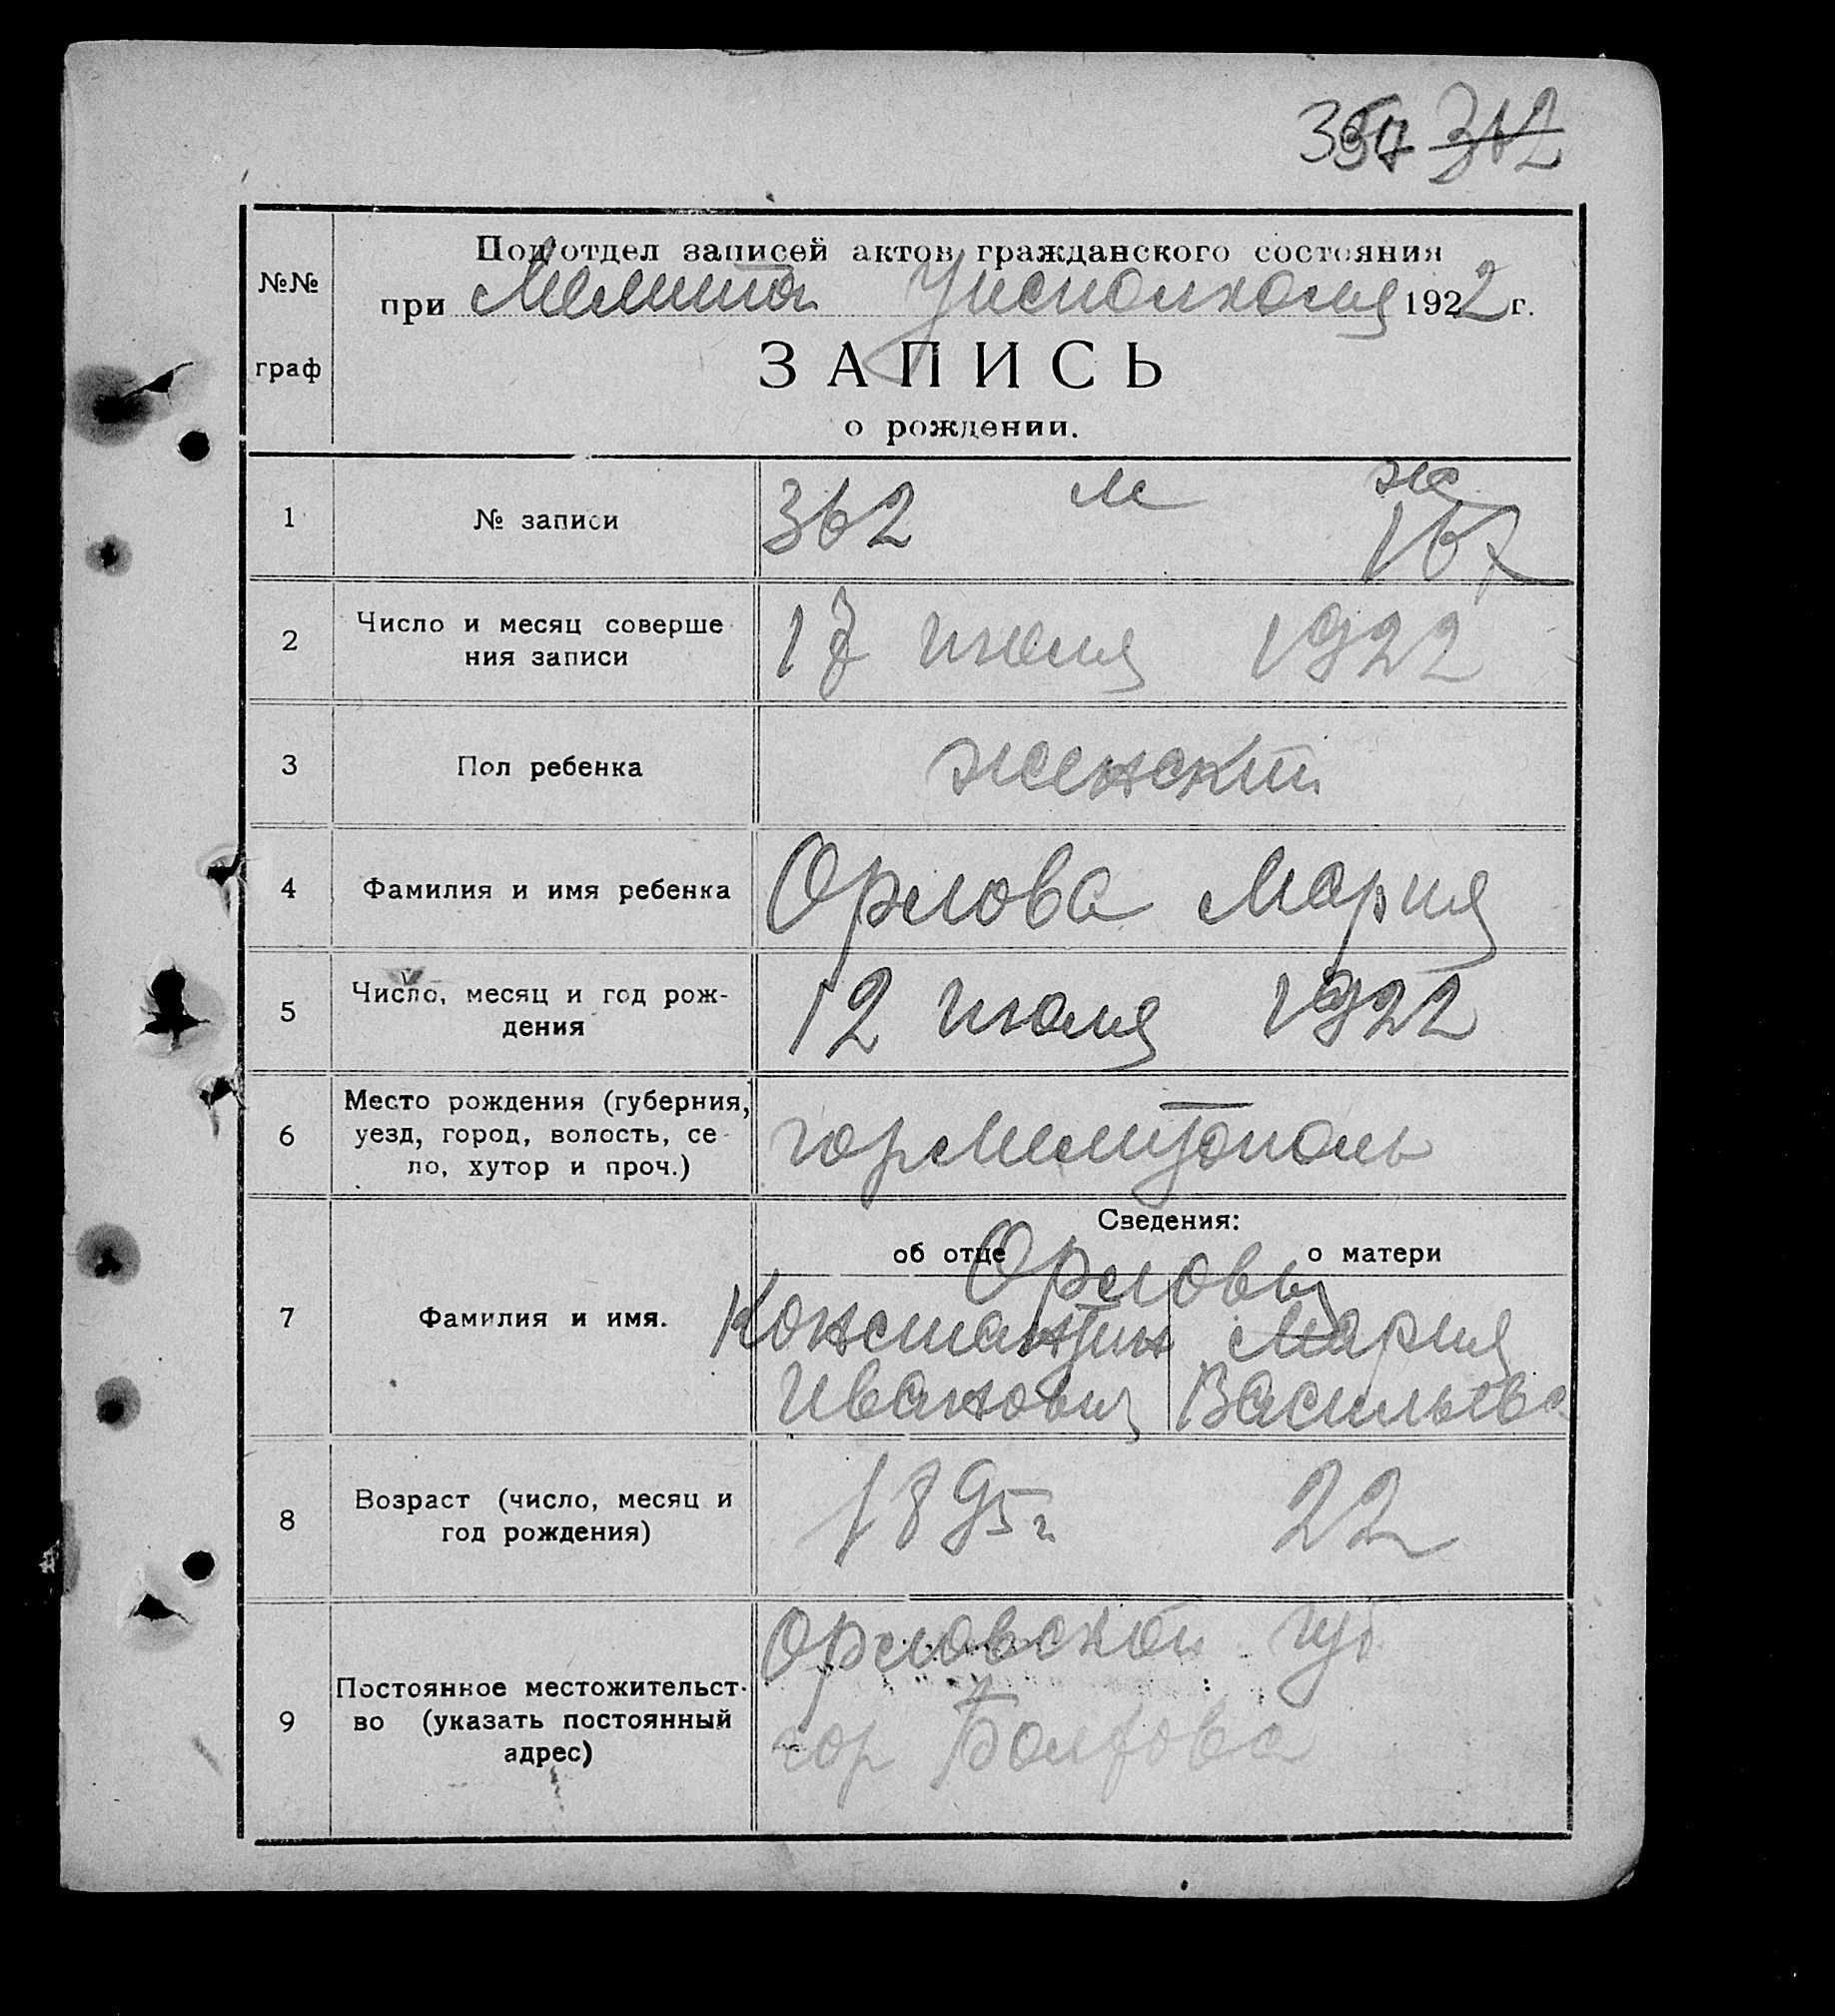 362
Подотдел записей актов гражданского состояния
при Мелита Уисполкома 1922 г.
№№
граф
ЗАПИСЬ
о рождении.
1 № записи 362 м ж 167
2 Число и месяц соверше
ния записи 17 июля 1922
3 Пол ребенка женский
4 Фамилия и имя ребенка Орлова Мария
5 Число, месяц и год рож-
дения 12 июля 1922
6 Место рождения (губерния,
уезд, город, волость, се-
ло, хутор и проч.) гор Мелитополь
Сведения:
об отце о матери
Орловы
7 Фамилия и имя. Константин Мария
Иванович Васильевна
8 Возраст (число, месяц и
год рождения) 1895 г 22
Орловской губ
9 Постоянное местожительст-
во (указать постоянный
адрес) гор